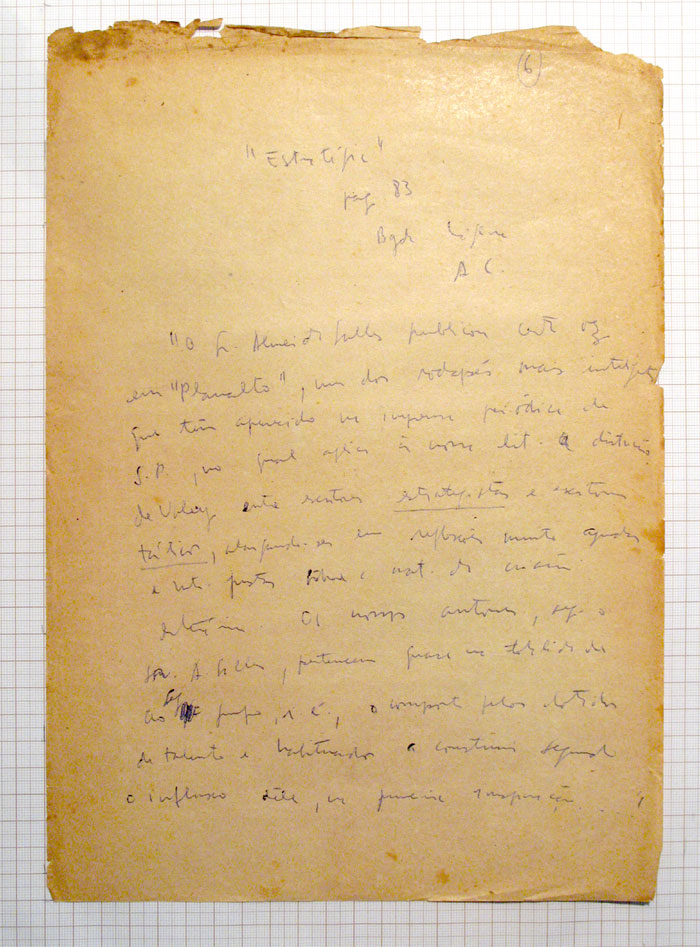 6
"Estratégia"
pag 83
A C.
"O Sr. Almeida Salles publicou certa vez
em "Planalto", um dos rodapés mais inteligentes
que têm aparecido na imprensa periódica de
S. P., no qual aplica à nossa lit. a distinção
de Valéry entre escritores estrategistas e escritores
táticos, alongando-se em reflexões muito agudas
e mto. justas sobre a nat. da criação
literária. Os nossos autores, seg. o
Sr. A Salles, pertencem quase na totalidade
ao seg grupo, i. é., o composto pelos dotados
de talento e habituados a construir segundo
o influxo dêle, na primeira inspiração